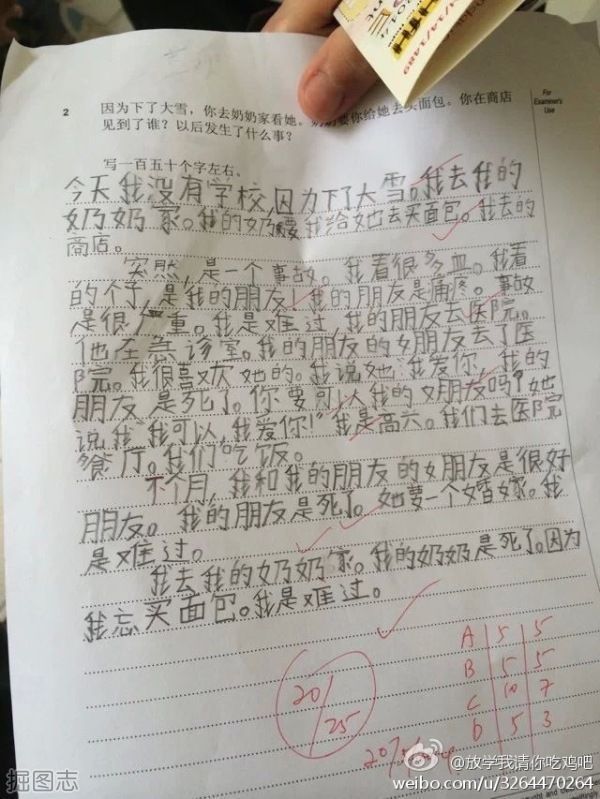 For
Examiner's
Use
2 因为下了大雪，你去奶奶家看她。奶奶要你给她去买面包。你在商店
见到了谁？以后发生了什么事？
写一百五十个字左右。
今天我没有学校,因为下了大雪。我去我的
奶奶家。我的奶要我给她去买面包。我去的
商店。
突然,是一个事故。我看很多血。我看
的个子,是我的朋友!我的朋友是痛疼。事故
是很严重。我是难过,我的朋友去医院。
他在急诊室。我的朋友的女朋友去了医
院。我很喜欢她的。我说她:我爱你,我的
朋友是死了。你要可以我的女朋友吗?她
说我"我可以,我爱你!"我是高六。我们去医院
餐厅。我们吃饭。
下个月,我和我的朋友的女朋友是很好
朋友。我的朋友是死了。她要一个婚嫁。我
是难过。
我去我的奶奶家。我的奶奶是死了。因为
我忘买面包。我是难过。
20/25
A 5 5
B 5 5
C 10 7
D 5 3
掘图志
@放学我请你吃鸡吧
weibo.com/u/3264470264